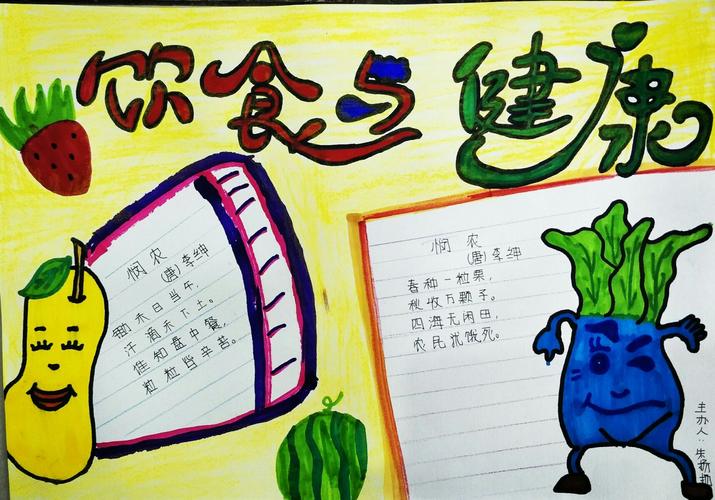 饮食与健康
悯农
(唐)李绅
锄禾日当午,
汗滴禾下土。
谁知盘中餐,
粒粒皆辛苦。
悯农
(唐)李绅
春种一粒粟,
秋收万颗子。
四海无闲田,
农民犹饿死。
主办人:朱